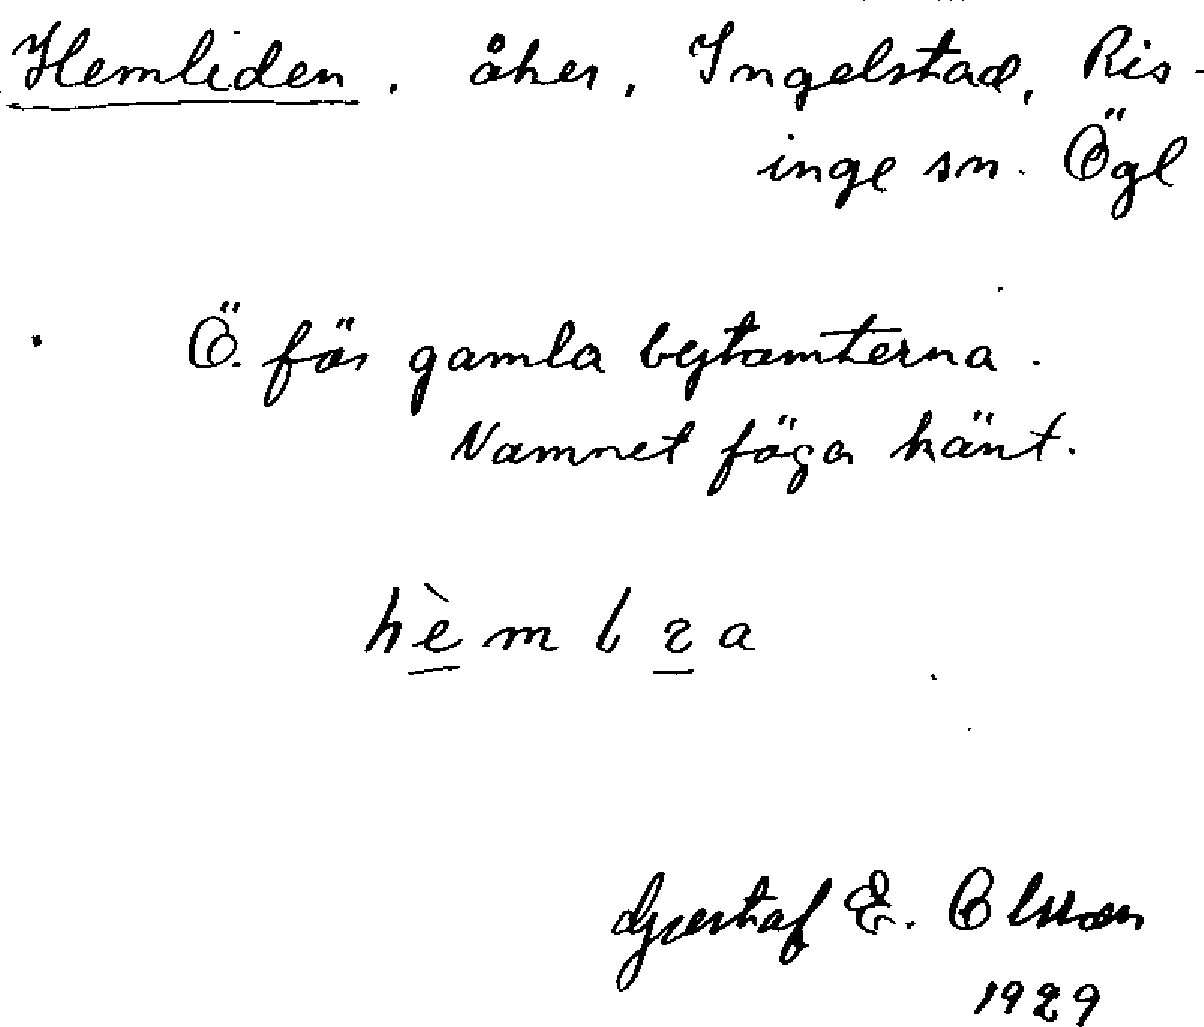 Hemliden. åker, Ingelstad, Ris-
inge sn. Ögl
Ö. för gamla bytomterna.
Namnet föga känt.
Gustaf E. Olsson
1929